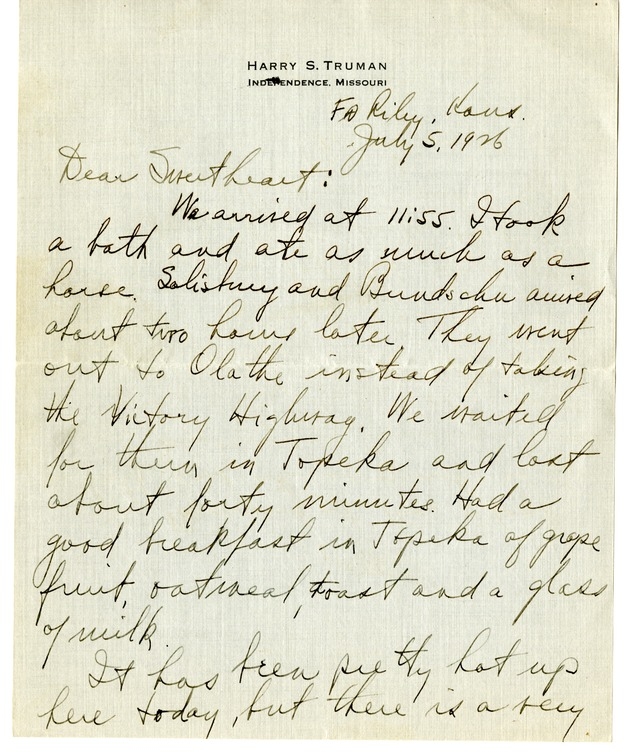 HARRY S. TRUMAN
INDEPENDENCE, MISSOURI
Ft Riley, Kans.
July 5, 1926
Dear Sweetheart:
We arrived at 11:55. I took
a bath and ate as much as a
horse. Salisbury and Bundschu arrived
about two hours later. They went
out to Olathe instead of taking
the Victory Highway. We waited
for them in Topeka and lost
about forty minutes. Had a
good breakfast in Topeka of grape
fruit, oatmeal, toast and a glass
of milk.
It has been pretty hot up
here today, but there is a very